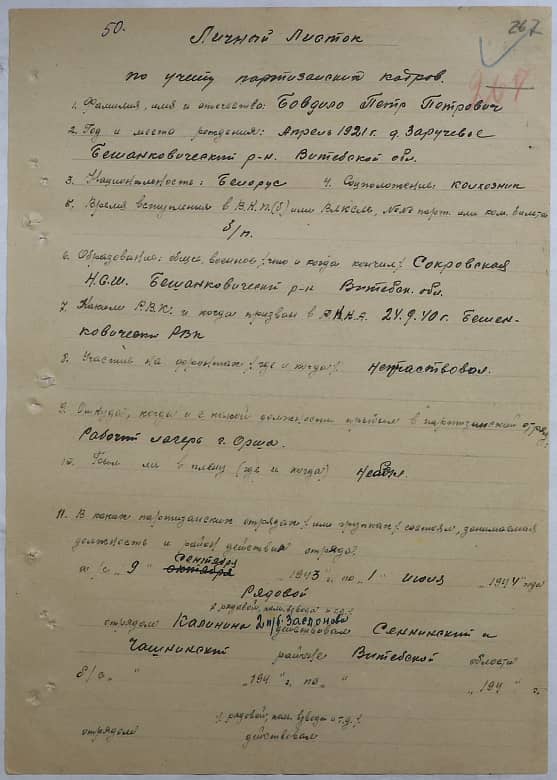 50.
267
Личный Листок
267
по учету партизанских кадров.
1. Фамилия, имя и отчество: Бовдило Петр Петрович
2. Год и место рождения: Апрель 1921 г. д. Заручевье
Бешанковический р-н. Витебской обл.
3. Национальность: Белорус 4. Соцположение: колхозник
5. Время вступления в В.К.П.(б) или ВЛКСМ, №№ парт. или ком. билета
б/п.
6. Образование: общее, военное /что и когда кончил/ Сокровская
Н.С.Ш. Бешанковический р-н Витебск. обл.
7. Каким Р.В.К. и когда призван в Р.К.К.А. 24.9.40 г. Бешен-
ковически РВК
8. Участие на фронтах /где и когда/. не участвовал.
9. Откуда, когда и с какой должности прибыл в партизанский отряд
Рабочий лагерь г. Орша.
10. Был ли в плену (где и когда) не был.
11. В каких партизанских отрядах /или группах/ состоял, занимаемая
должность и район действия отряда
сентября
а/ с "9" октября 1943 г. по "1" июня 1944 года
Рядовой
/рядовой, ком. взвода и т.д./
отрядом Калинина 2 п/б. Заслонова действовал Сеннинский и
Чашнинский районе Витебской области
б/ с " " 194 г. по " " 194 г.
/рядовой, ком. взвода и т.д./
отрядом действовал